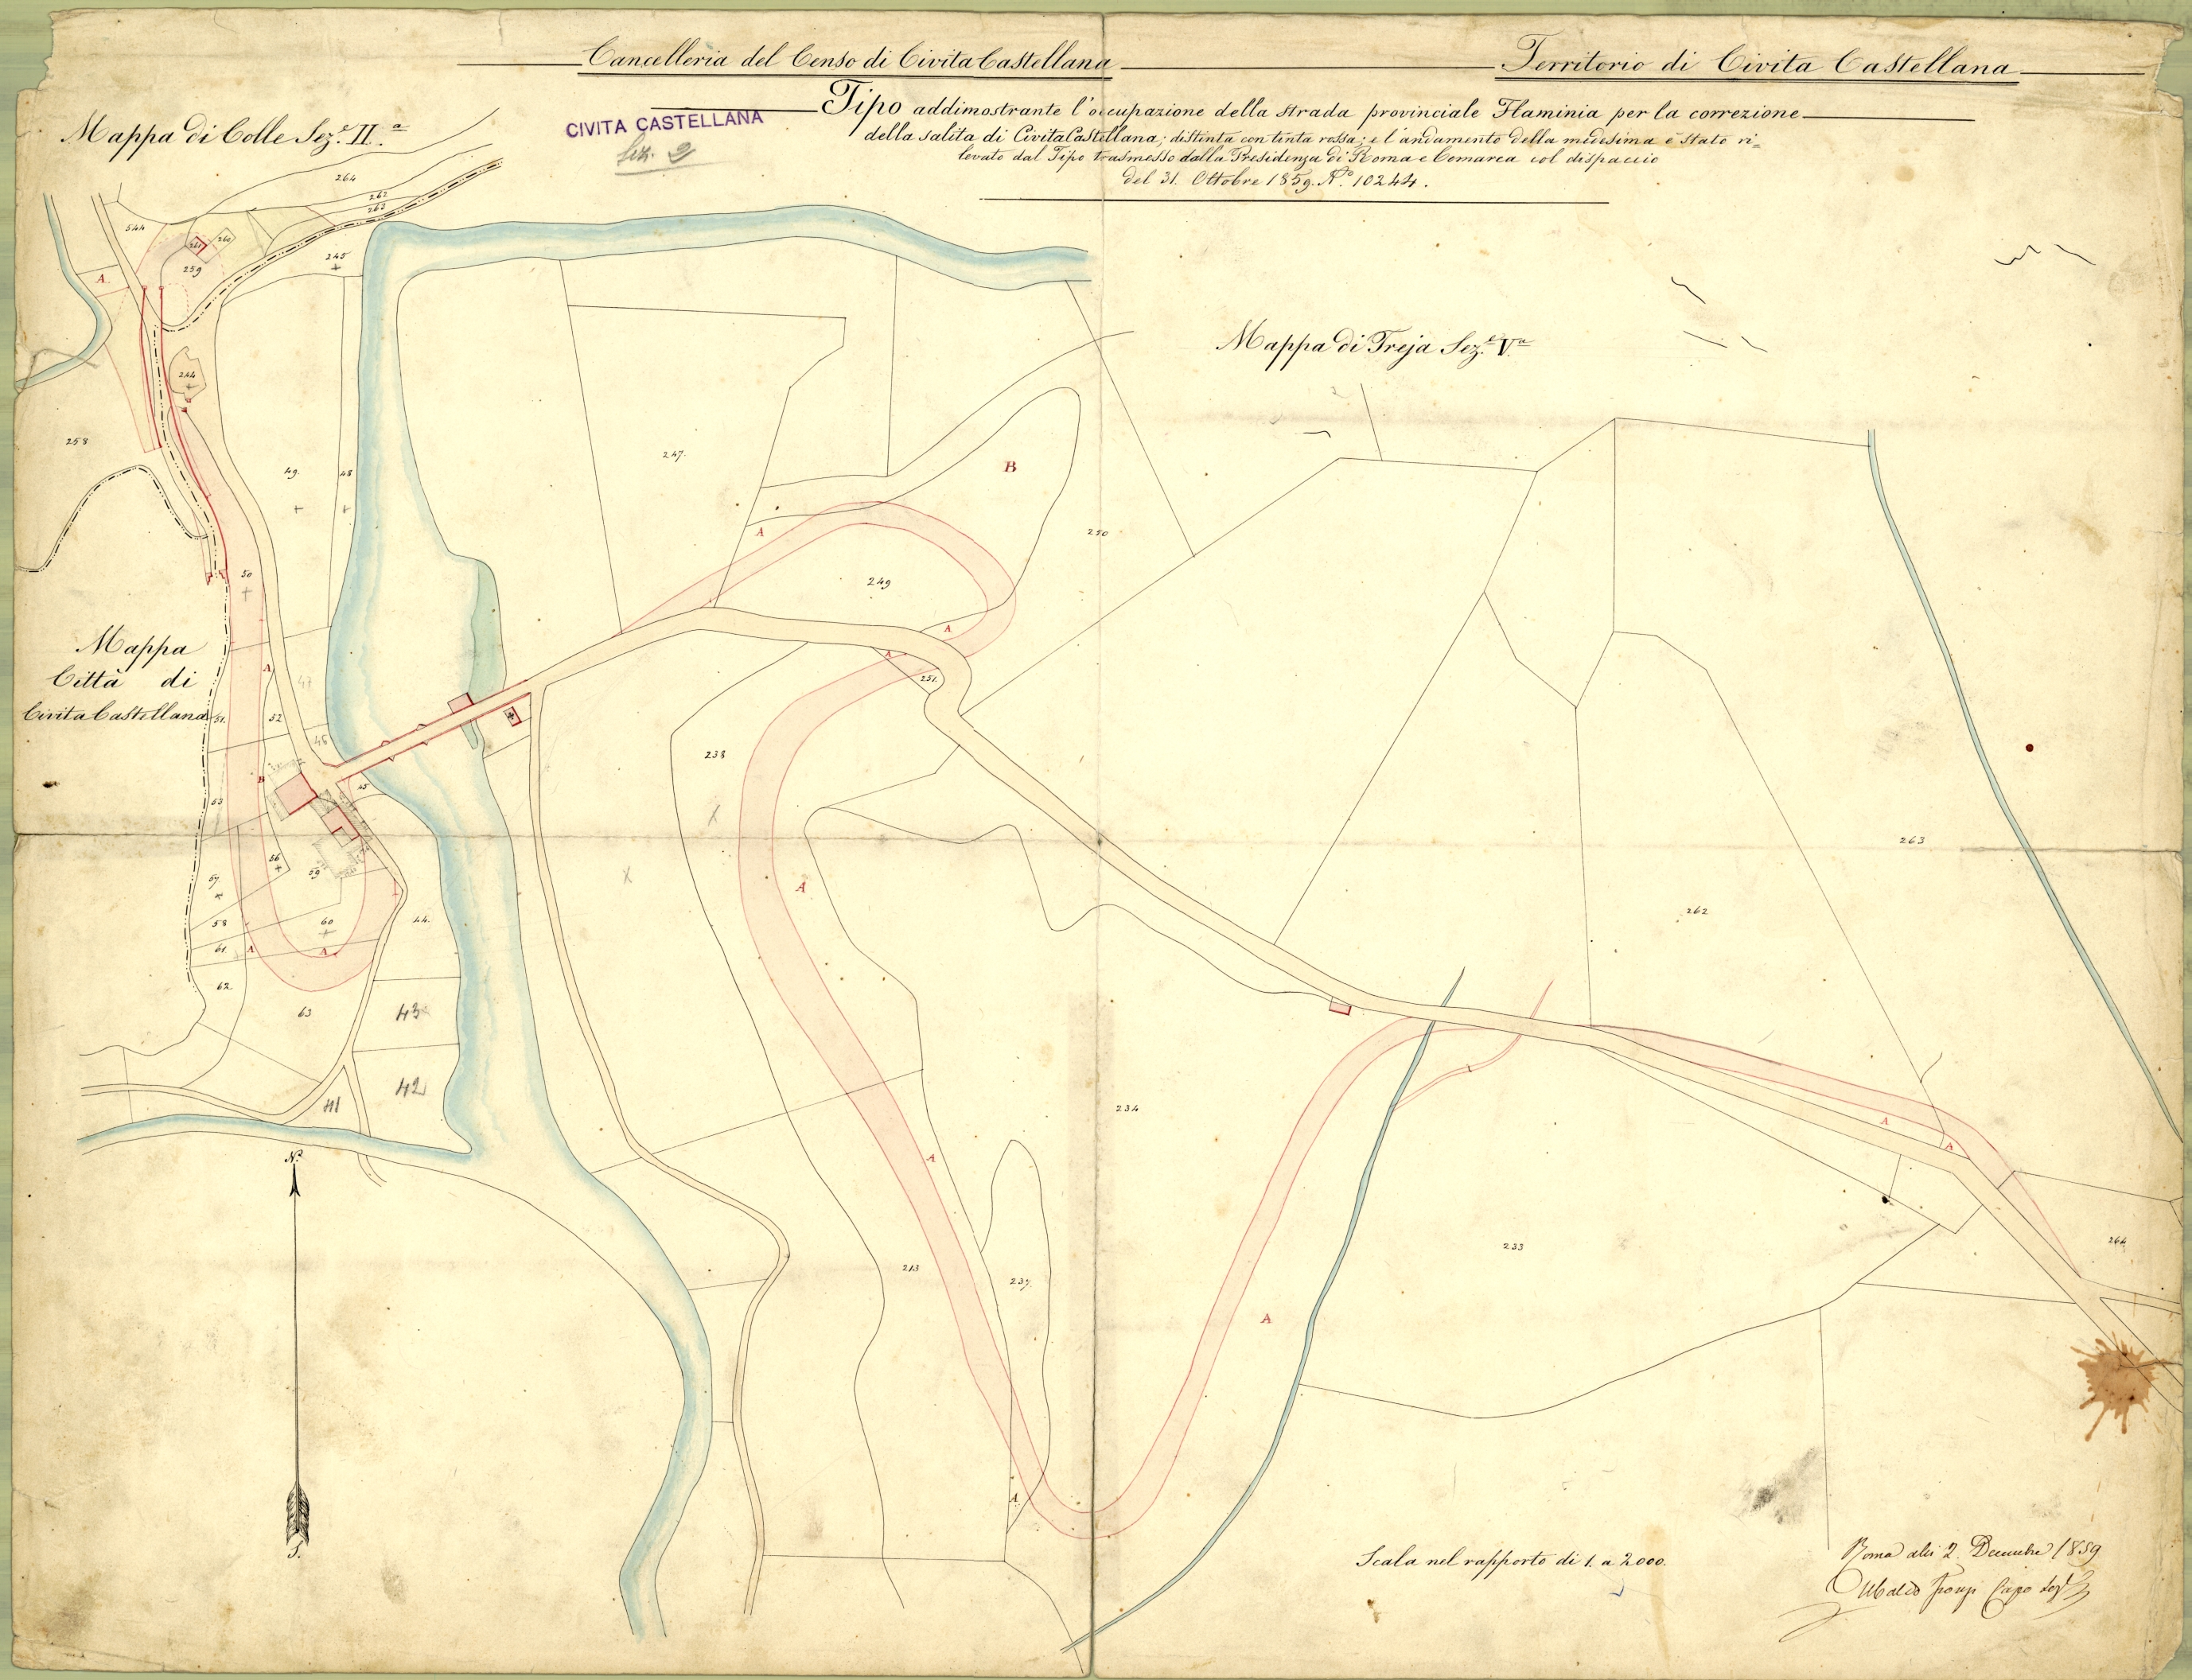 Cancelleria del Censo di Civita Castellana
Territorio di Civita Castellana
Tipo addimostrante l'occupazione della strada provinciale Flaminia per la correzione
della salita di Civita Castellana; distinta con tinta rossa; e l'andamento della medesima è stato ri=
levato dal Tipo trasmesso dalla Presidenza di Roma e Comarca col dispaccio
del 31. Ottobre 1859. N.º 10244.
Mappa di Colle Sez.e II.a
CIVITA CASTELLANA
Sez. 2
Mappa di Treja Sez.e V.a
264
262
263
544
261
260
259
245
A
244
258
49.
48
247.
B
250
A
249
50
A
A
251.
Mappa
Città di
Civita Castellana
A
47
51.
52
46
238
B
45
53
263
56
59
57
A
262
58
60
44.
61.
A
A
62
63
43
42
41
234
A
A
A
N.
233
264
213
237
A
A
S.
Scala nel rapporto di 1. a 2000.
Roma alli 2. Decembre 1859
Ubaldo Capo